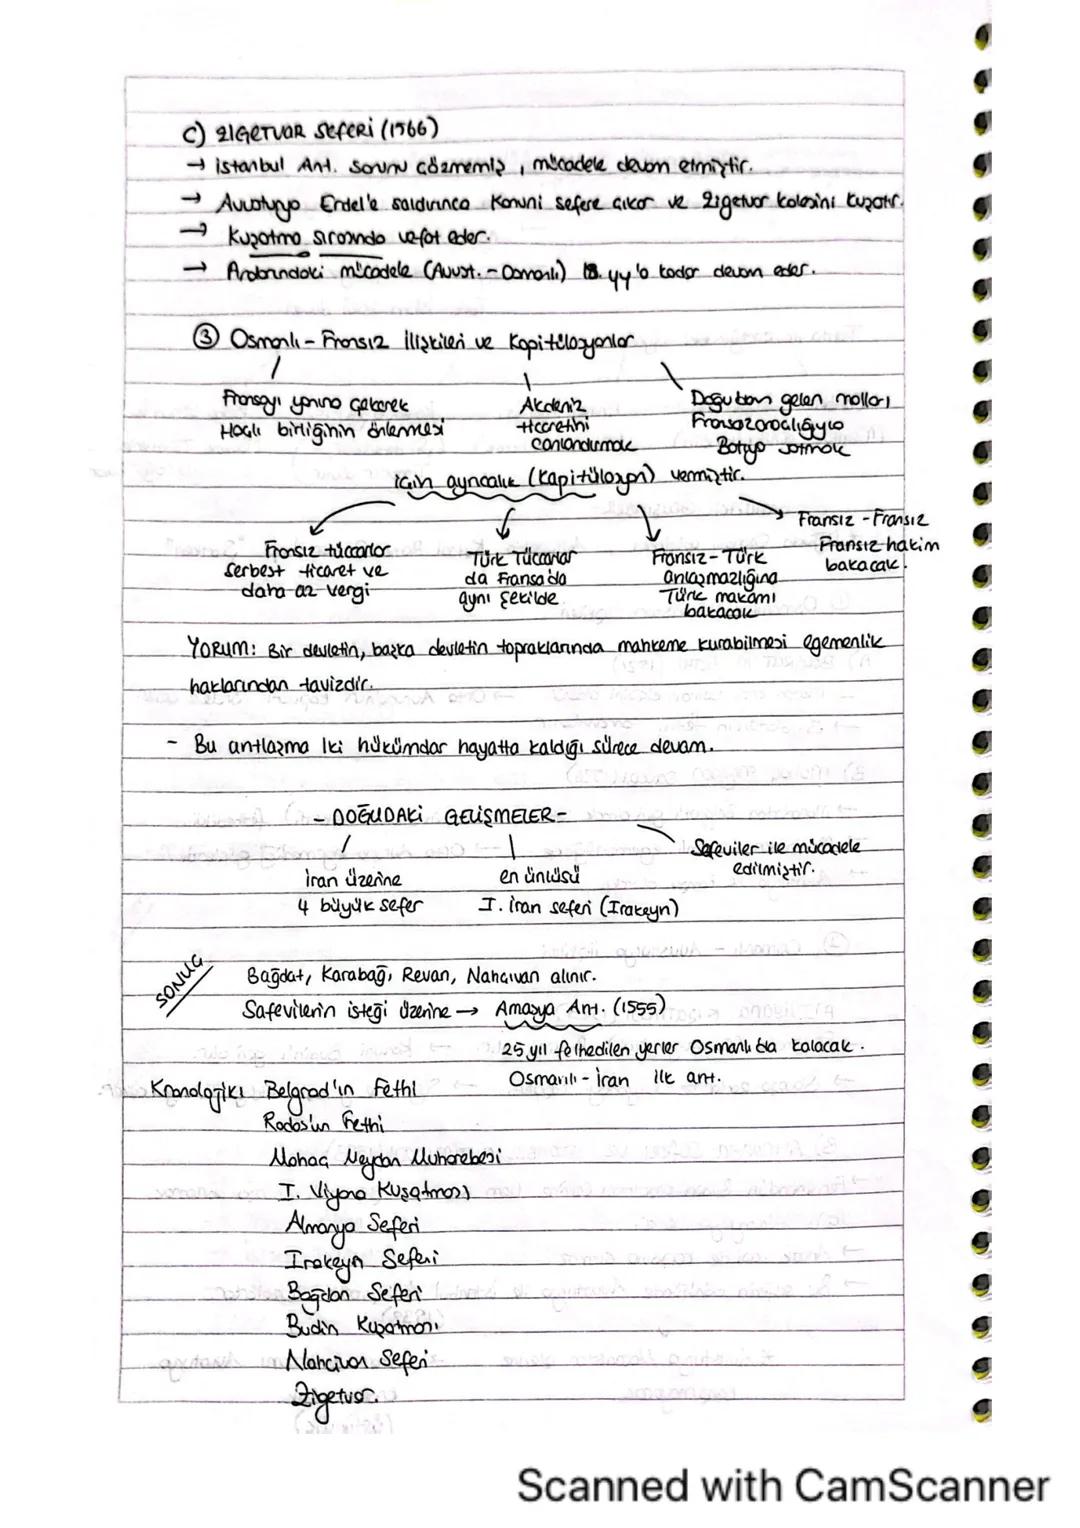 C) ZİGETVAR SEFERİ (1566)
→ İstanbul Ant. sorunu çözmemiş, mücadele devam etmiştir.
→ Avusturya Erdel'e saldırınca Kanuni sefere çıkar ve Zigetvar kalesini kuşatır.
→ Kuşatma sırasında vefat eder.
→ Ardarındaki mücadele (Avust. - Osmanlı) 18. yy'a kadar devam eder.
③ Osmanlı - Fransız İlişkileri ve Kapitülasyonlar
Fransayı yanına çekerek
Haçlı birliğinin önlenmesi
Akdeniz
ticaretini
canlandırmak
Doğudan gelen malları
Fransa aracılığıyla
Batıya satmak
için ayrıcalık (kapitülasyon) vermiştir.
Fransız tüccarlar
serbest ticaret ve
daha az vergi
Türk Tüccarlar
da Fransa'da
aynı şekilde
Fransız - Türk
anlaşmazlığına
Türk makamı
bakacak
Fransız - Fransız
Fransız hakim
bakacak.
YORUM: Bir devletin, başka devletin topraklarında mahkeme kurabilmesi egemenlik
haklarından tavizdir.
- Bu antlaşma iki hükümdar hayatta kaldığı sürece devam.
- DOĞUDAKİ GELİŞMELER -
İran üzerine
4 büyük sefer
en ünlüsü
I. İran seferi (Irakeyn)
Safeviler ile mücadele
edilmiştir.
SONUÇ
Bağdat, Karabağ, Revan, Nahcıvan alınır.
Safevilerin isteği üzerine → Amasya Ant. (1555)
25 yıl fethedilen yerler Osmanlıda kalacak.
Osmanlı - İran ilk ant.
Kronolojiki Belgrad'ın Fethi
Rodos'un Fethi
Mohaç Meydan Muharebesi
I. Viyana Kuşatması
Almanya Seferi
Irakeyn Seferi
Boğdan Seferi
Budin Kuşatması
Nahcivan Seferi
Zigetvar.
Scanned with CamScanner